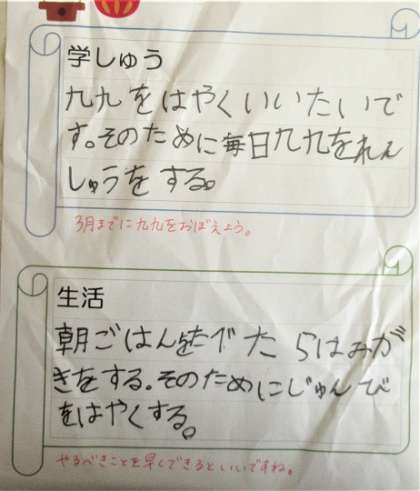 学しゅう
九九をはやくいいたいで
す。そのために毎日九九をれん
しゅうをする。
3月までに九九をおぼえよう。
生活
朝ごはんをたべたらはみが
きをする。そのためにじゅんび
をはやくする。
やるべきことを早くできるといいですね。